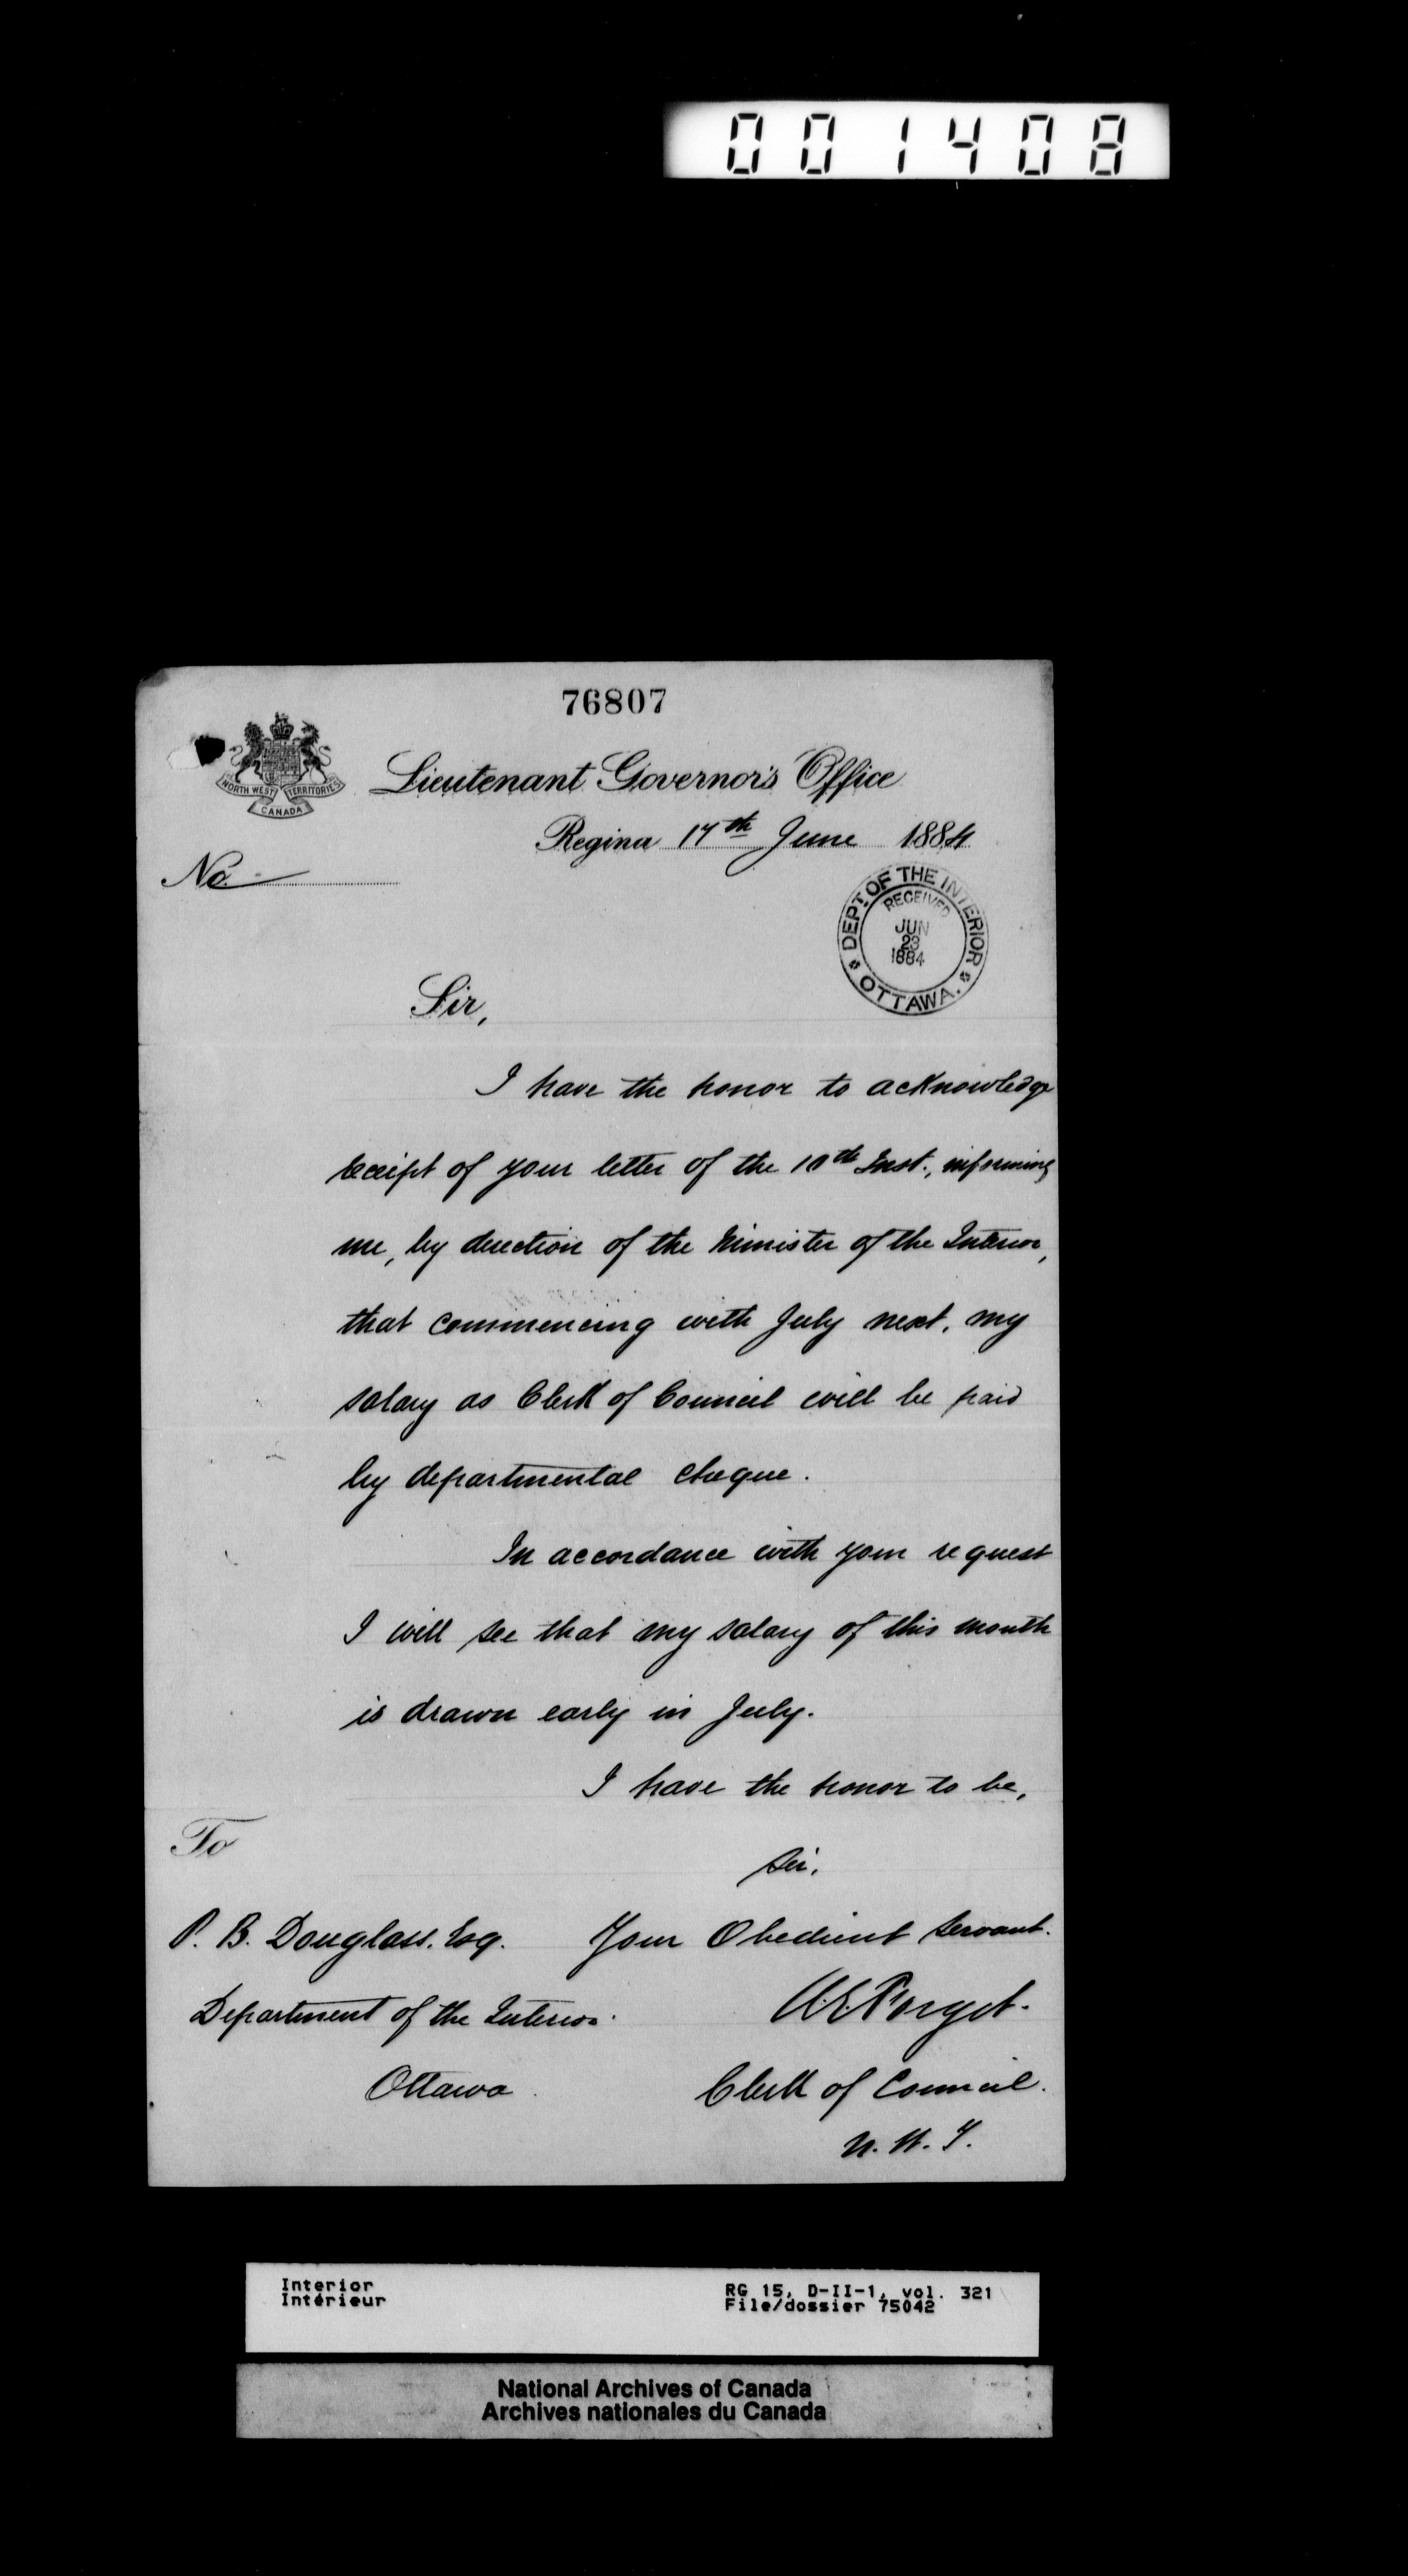 001408
76807
NORTH WEST TERRITORIES
CANADA
Lieutenant Governor's Office
Regina 17th June 1884
No.
DEPT. OF THE INTERIOR
RECEIVED
JUN
23
1884
OTTAWA.
Sir,
I have the honor to acknowledge
receipt of your letter of the 10th Inst., informing
me, by direction of the Minister of the Interior,
that commencing with July next, my
salary as Clerk of Council will be paid
by departmental cheque.
In accordance with your request
I will see that my salary of this month
is drawn early in July.
I have the honor to be,
Sir,
Your Obedient Servant.
A.E. Forget.
Clerk of Council.
N. W. T.
To
P. B. Douglass, Esq.
Department of the Interior.
Ottawa
Interior
Intérieur
RG 15, D-II-1, vol. 321
File/dossier 75042
National Archives of Canada
Archives nationales du Canada